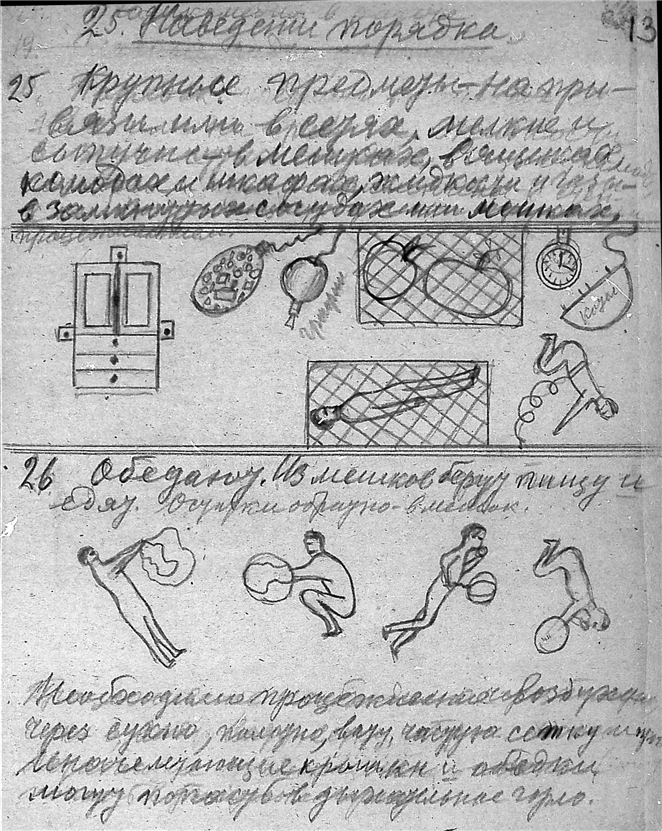 13
25. Наведение порядка.
25 Крупные предметы – на при-
вязи или в сетях, мелкие и
сыпучие – в мешках, в ящиках
комодах и шкафах, жидкости и газы –
в замкнутых сосудах или мешках.
26 Обедают. Из мешков берут пищу и
едят. Остатки обратно – в мешок.
Необходимо процеживание воздуха
через сукно, полотно, вату, частую сетку
летающие крошки и объедки
могут попасть в дыхательное горло.